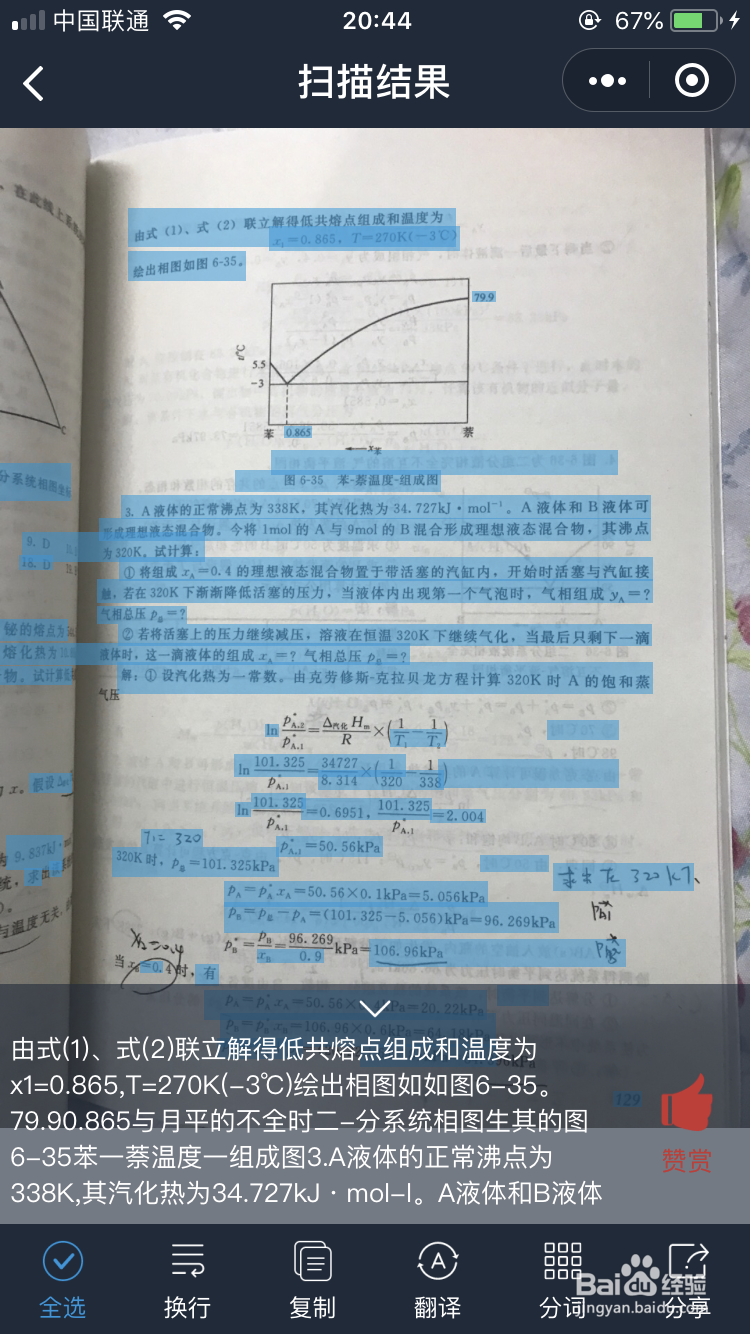 中国联通
20:44
67%
扫描结果
由式(1)、式(2)联立解得低共熔点组成和温度为
x₁=0.865, T=270K(-3℃)
绘出相图如图6-35。
79.9
t/℃
5.5
-3
苯
0.865
萘
x苯
图6-35 苯-萘温度-组成图
3. A液体的正常沸点为338K,其汽化热为34.727kJ·mol⁻¹。A液体和B液体可
形成理想液态混合物。今将1mol的A与9mol的B混合形成理想液态混合物,其沸点
为320K。试计算:
①将组成xA=0.4的理想液态混合物置于带活塞的汽缸内,开始时活塞与汽缸接
触,若在320K下渐渐降低活塞的压力,当液体内出现第一个气泡时,气相组成yA=?
气相总压p总=?
②若将活塞上的压力继续减压,溶液在恒温320K下继续气化,当最后只剩下一滴
液体时,这一滴液体的组成xA=?气相总压p总=?
解:①设汽化热为一常数。由克劳修斯-克拉贝龙方程计算320K时A的饱和蒸
气压
ln p*A,2/p*A,1=Δ汽化Hm/R×(1/T₁-1/T₂)
ln 101.325/p*A,1=34727/8.314×(1/320-1/338)
ln 101.325/p*A,1=0.6951, 101.325/p*A,1=2.004
p*A,1=50.56kPa
T=320
320K时,p总=101.325kPa
求出在320K下、
pA=p*A xA=50.56×0.1kPa=5.056kPa
pB=p总-pA=(101.325-5.056)kPa=96.269kPa
p*B=pB/xB=96.269/0.9 kPa=106.96kPa
PA*
PB*
xA=0.4
当xB=0.4时,有
pA=p*A xA=50.56×0.4kPa=20.22kPa
pB=106.96×0.6kPa=64.18kPa
129
分系统相图坐标
9. D
18. D
铋的熔点为
熔化热为
物。试计算低
假设
9.837kJ·
统,求出
与温度无关,
由式(1)、式(2)联立解得低共熔点组成和温度为
x1=0.865,T=270K(-3℃)绘出相图如如图6-35。
79.90.865与月平的不全时二-分系统相图生其的图
6-35苯一萘温度一组成图3.A液体的正常沸点为
338K,其汽化热为34.727kJ·mol-l。A液体和B液体
赞赏
全选
换行
复制
翻译
分词
分享
Baidu经验
jingyan.baidu.com